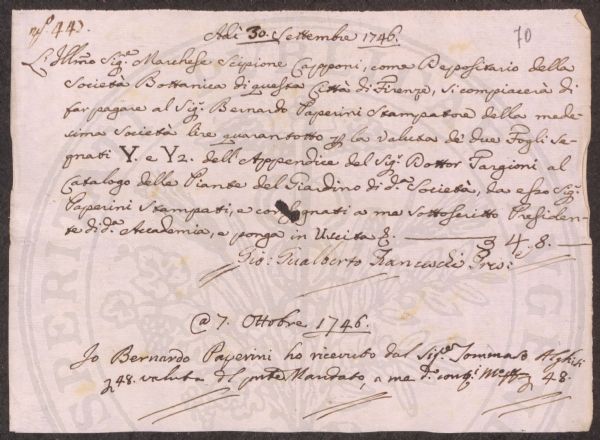 No. 443.
Adì 30. Settembre 1746.
70
L'Illmo Sigr. Marchese Scipione Capponi, come Depositario della
Società Bottanica di questa Città di Firenze, si compiacerà di
far pagare al Sigr. Bernardo Paperini Stampatore della mede-
sima Società lire quarantotto per la valuta de due Fogli se-
gnati Y. e Y2. dell'Appendice del Sigr. Dottor Targioni al
Catalogo delle Piante del Giardino di da. Società, da esso Sigr.
Paperini Stampati, e consegnati a me sottoscritto Presiden-
te di da. Accademia, e ponga in Uscita 48.
Gio: Gualberto Franceschi Pres:
@ 7. Ottobre 1746.
Io Bernardo Paperini ho ricevuto dal Sigre. Tommaso Alghisi
48. valuta del pnte Mandato, a me do. 48.
SPERI